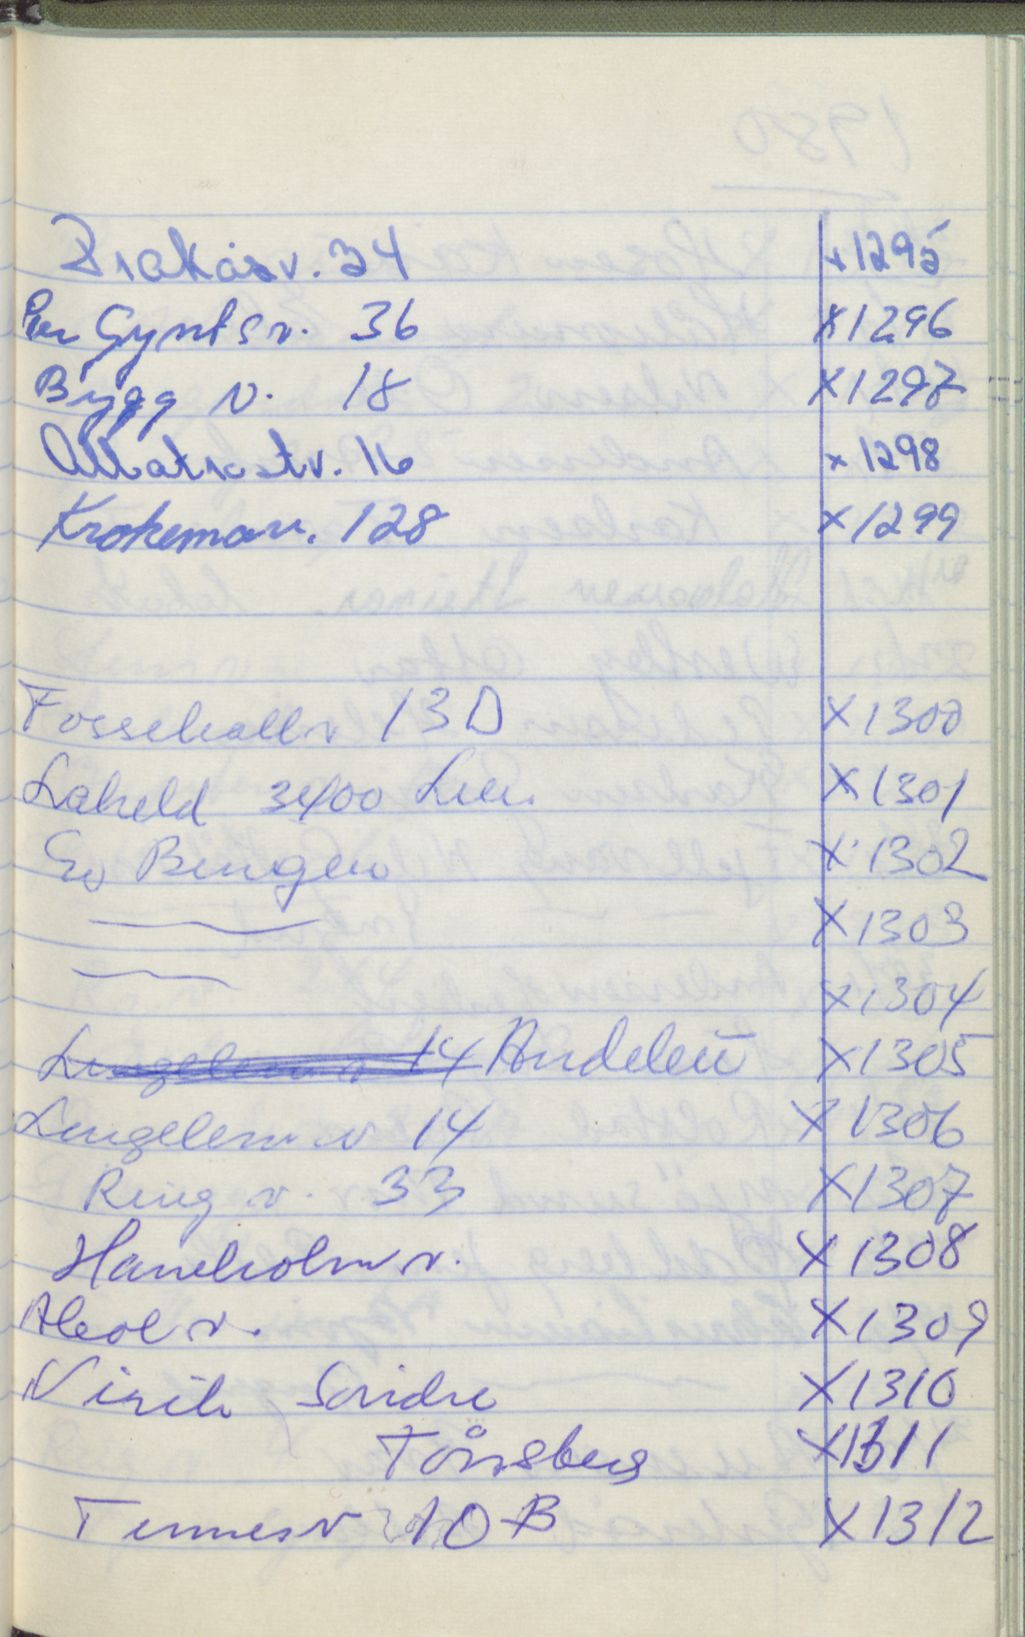 Brakåsv. 34 x 1295
Per Gyntsv. 36 x 1296
Bygg v. 18 x 1297
Albatrostv. 16 x 1298
Krokemoav. 128 x 1299
Fossekallv 13 D x 1300
3400 Lier. x 1301
Bingen x 1302
x 1303
x 1304
14 x 1305
Lingelem v 14 x 1306
Ring v. 33 x 1307
Haneholmv. x 1308
v. x 1309
Søndre x 1310
Tønsberg x 1311
10 B x 1312